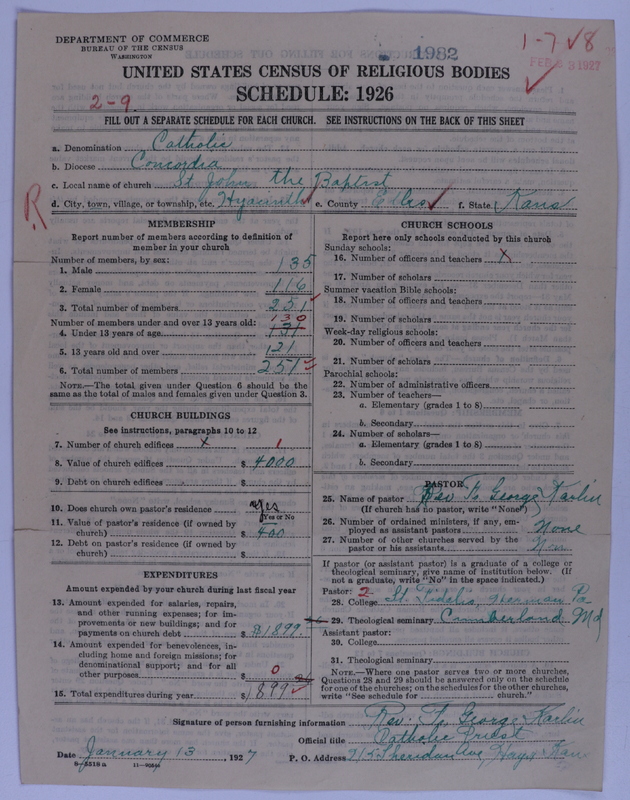 DEPARTMENT OF COMMERCE
BUREAU OF THE CENSUS
WASHINGTON
1982
1-7 √8
FEB 3 1927
UNITED STATES CENSUS OF RELIGIOUS BODIES
SCHEDULE: 1926
2-9
FILL OUT A SEPARATE SCHEDULE FOR EACH CHURCH. SEE INSTRUCTIONS ON THE BACK OF THIS SHEET
a. Denomination Catholic
b. Diocese Concordia
c. Local name of church St John the Baptist
d. City, town, village, or township, etc. Hyacinth e. County Ellis f. State Kans
R
MEMBERSHIP
Report number of members according to definition of member in your church
Number of members, by sex:
1. Male 135
2. Female 116
3. Total number of members 251
Number of members under and over 13 years old: 130
4. Under 13 years of age 131
5. 13 years old and over 121
6. Total number of members 251
NOTE.—The total given under Question 6 should be
same as the total of males and females given under Question 3.
CHURCH BUILDINGS
See instructions, paragraphs 10 to 12
7. Number of church edifices x 1
8. Value of church edifices $ 4000
9. Debt on church edifices $
10. Does church own pastor's residence Yes
Yes or No
11. Value of pastor's residence (if owned by
church) $ 400
12. Debt on pastor's residence (if owned by
church) $
EXPENDITURES
Amount expended by your church during last fiscal year
13. Amount expended for salaries, repairs,
and other running expenses; for im-
provements or new buildings; and for
payments on church debt $1899
14. Amount expended for benevolences, in-
cluding home and foreign missions; for
denominational support; and for all
other purposes $ 0
15. Total expenditures during year $1899
CHURCH SCHOOLS
Report here only schools conducted by this church
Sunday schools:
16. Number of officers and teachers X
17. Number of scholars
Summer vacation Bible schools:
18. Number of officers and teachers
19. Number of scholars
Week-day religious schools:
20. Number of officers and teachers
21. Number of scholars
Parochial schools:
22. Number of administrative officers
23. Number of teachers—
a. Elementary (grades 1 to 8)
b. Secondary
24. Number of scholars—
a. Elementary (grades 1 to 8)
b. Secondary
PASTOR
25. Name of pastor Rev. Fr. George Karlin
(If church has no pastor, write "None")
26. Number of ordained ministers, if any, em-
ployed as assistant pastors None
27. Number of other churches served by the
pastor or his assistants
If pastor (or assistant pastor) is a graduate of a college or
theological seminary, give name of institution below. (If
not a graduate, write "No" in the space indicated.)
Pastor: 2
28. College St. Fidelis, Herman Pa
29. Theological seminary Cumberland Md
Assistant pastor:
30. College
31. Theological seminary
NOTE.—Where one pastor serves two or more churches,
Questions 28 and 29 should be answered only on the schedule
for one of the churches; on the schedules for the other churches,
write "See schedule for church."
Signature of person furnishing information Rev. Fr. George Karlin
Official title Catholic Priest
Date January 13, 1927 P. O. Address 715 Sheridan Ave, Hays Kans
8-5518 a